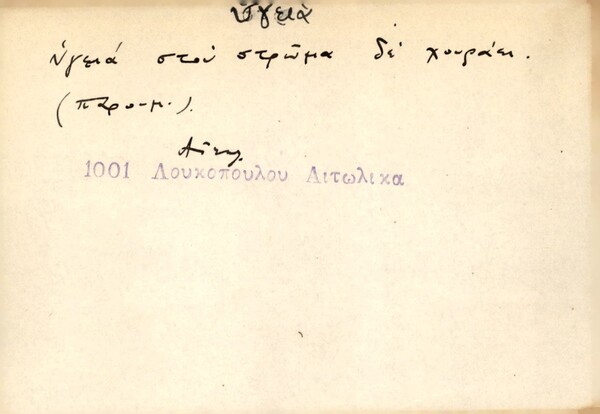 υγειὰ
ὑγειά στοὺ στρῶμα δὲ χουράει.
(παροιμ.).
Αἰτωλ.
1001 Λουκοπουλου Αιτωλικα